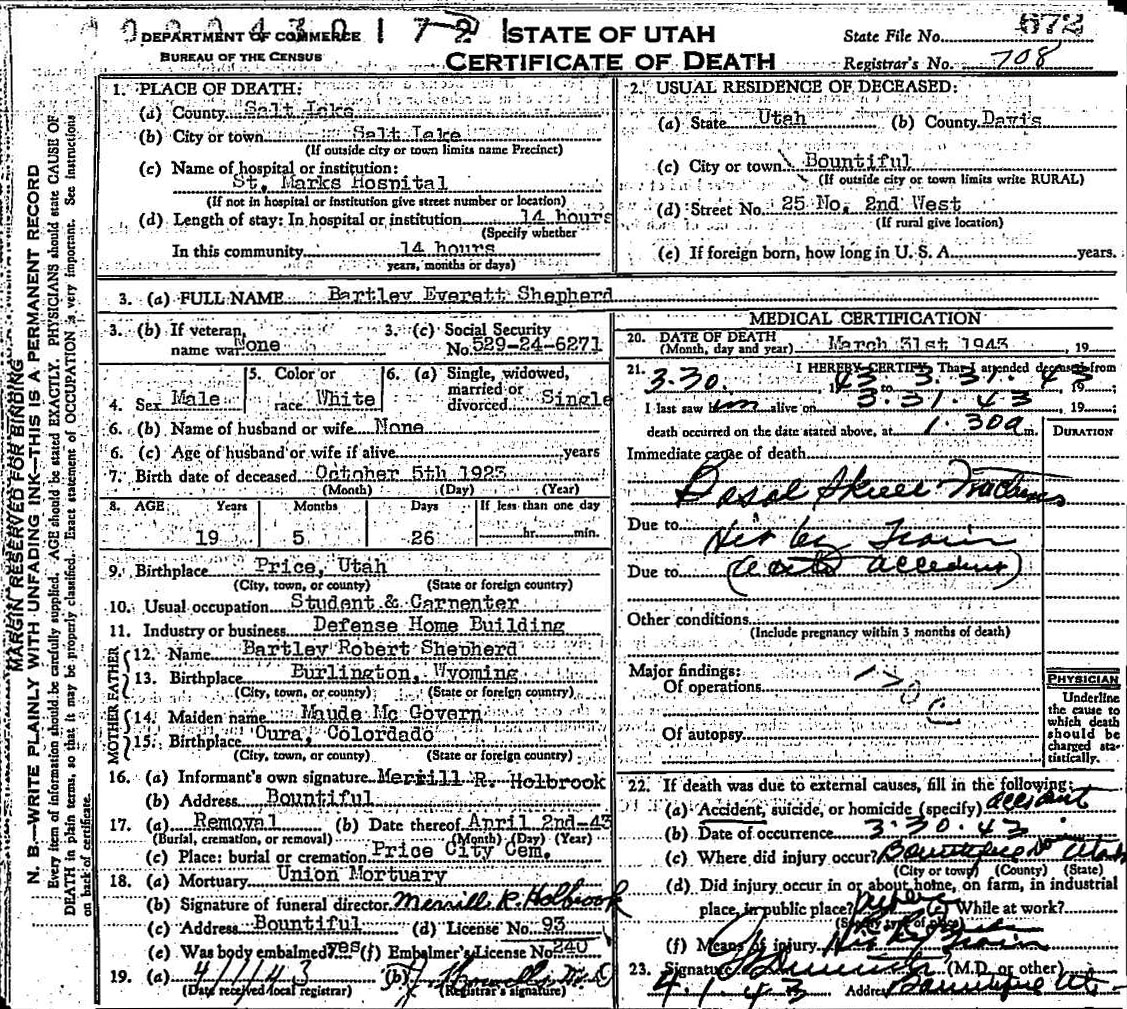 DEPARTMENT OF COMMERCE
BUREAU OF THE CENSUS
STATE OF UTAH
CERTIFICATE OF DEATH
State File No. 672
Registrar's No. 708
MARGIN RESERVED FOR BINDING
N. B.—WRITE PLAINLY WITH UNFADING INK—THIS IS A PERMANENT RECORD
Every item of information should be carefully supplied. AGE should be stated EXACTLY. PHYSICIANS should state CAUSE OF
DEATH in plain terms, so that it may be properly classified. Exact statement of OCCUPATION is very important. See instructions
on back of certificate.
1. PLACE OF DEATH:
(a) County Salt Lake
(b) City or town Salt Lake
(If outside city or town limits name Precinct)
(c) Name of hospital or institution:
St. Marks Hospital
(If not in hospital or institution give street number or location)
(d) Length of stay: In hospital or institution 14 hours
(Specify whether
In this community 14 hours
years, months or days)
2. USUAL RESIDENCE OF DECEASED:
(a) State Utah (b) County Davis
(c) City or town Bountiful
(If outside city or town limits write RURAL)
(d) Street No. 25 No. 2nd West
(If rural give location)
(e) If foreign born, how long in U. S. A. years.
3. (a) FULL NAME Bartley Everett Shepherd
3. (b) If veteran, name war None
3. (c) Social Security No. 529-24-6271
4. Sex Male
5. Color or race White
6. (a) Single, widowed, married or divorced Single
6. (b) Name of husband or wife None
6. (c) Age of husband or wife if alive years
7. Birth date of deceased October 5th 1923
(Month) (Day) (Year)
8. AGE Years Months Days If less than one day
19 5 26 hr. min.
9. Birthplace Price, Utah
(City, town, or county) (State or foreign country)
10. Usual occupation Student & Carpenter
11. Industry or business Defense Home Building
FATHER
12. Name Bartley Robert Shepherd
13. Birthplace Burlington, Wyoming
(City, town, or county) (State or foreign country)
MOTHER
14. Maiden name Maude Mc Govern
15. Birthplace Oura, Colordado
(City, town, or county) (State or foreign country)
16. (a) Informant's own signature Merrill R. Holbrook
(b) Address Bountiful
17. (a) Removal (b) Date thereof April 2nd-43
(Burial, cremation, or removal) (Month) (Day) (Year)
(c) Place: burial or cremation Price City Cem.
18. (a) Mortuary Union Mortuary
(b) Signature of funeral director Merrill R. Holbrook
(c) Address Bountiful (d) License No. 93
(e) Was body embalmed? yes (f) Embalmer's License No. 240
19. (a) 4/1/43 (b)
(Date received local registrar) (Registrar's signature)
MEDICAL CERTIFICATION
20. DATE OF DEATH
(Month, day and year) March 31st 1943, 19
21. I HEREBY CERTIFY That I attended deceased from
3.30. , 43 to 3.31.43 19 ;
I last saw him alive on 3.31.43 19 ;
death occurred on the date stated above, at 1.30a m.
DURATION
Immediate cause of death
Basal Skull Fractures
Due to Hit by Train
Due to (auto accident)
Other conditions
(Include pregnancy within 3 months of death)
Major findings:
Of operations
Of autopsy
PHYSICIAN
Underline
the cause to
which death
should be
charged sta-
tistically.
22. If death was due to external causes, fill in the following:
(a) Accident, suicide, or homicide (specify) accident
(b) Date of occurrence 3.30.43
(c) Where did injury occur? Bountiful Utah
(City or town) (County) (State)
(d) Did injury occur in or about home, on farm, in industrial
place, in public place? (e) While at work?
(Specify type of place)
(f) Means of injury Hit by Train
23. Signature (M.D. or other)
4.1.43 Address Bountiful Ut.